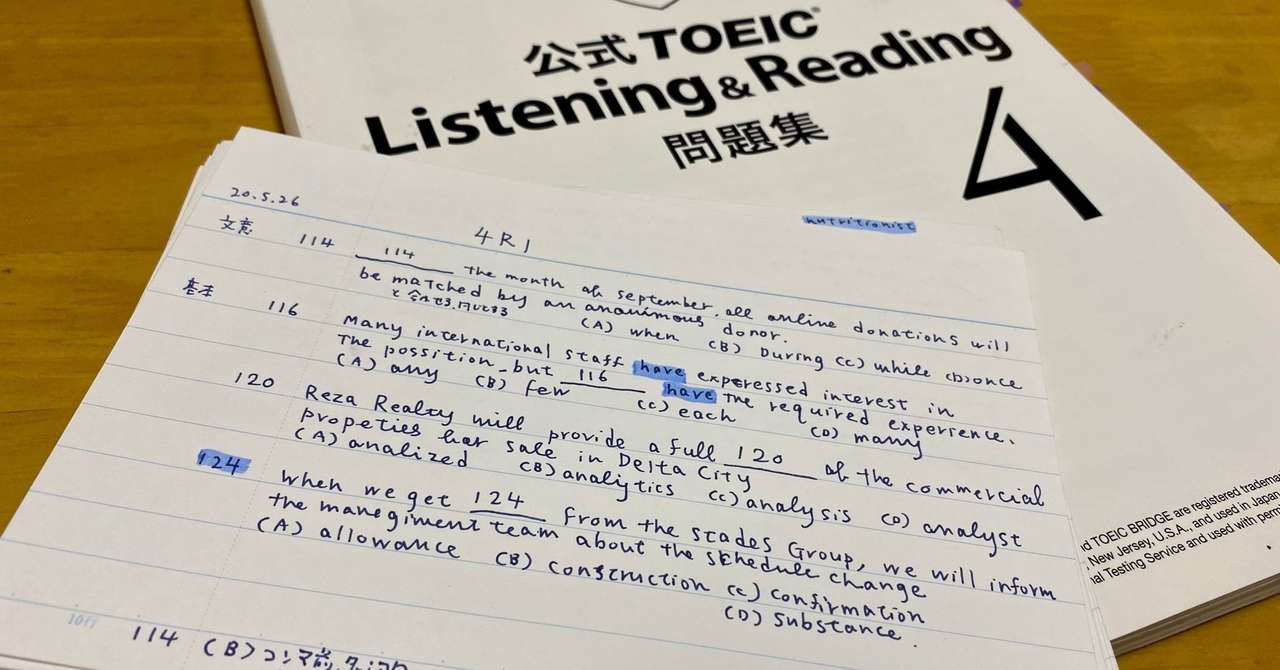 公式 TOEIC®
Listening & Reading
問題集
4
20.5.26
nutritionist
文意
114
4R1
114 the month of september, all online donations will
be matched by an anonimous donor.
(A) when (B) During (C) while (D) once
基本
116
Many international staff have experessed interest in
The possition, but 116 have the required experience.
(A) any (B) few (C) each (D) many
120
Reza Realty will provide a full 120 of the commercial
propeties for sale in Delta City
(A) analized (B) analytics (C) analysis (D) analyst
124
When we get 124 from the stades Group, we will inform
the manegiment team about the schedule change
(A) allowance (B) construction (C) confirmation
(D) substance
10行
114 (B) コンマ前
TOEIC BRIDGE are registered tradema
New Jersey, U.S.A., and used in Japan
Testing Service and used with perm